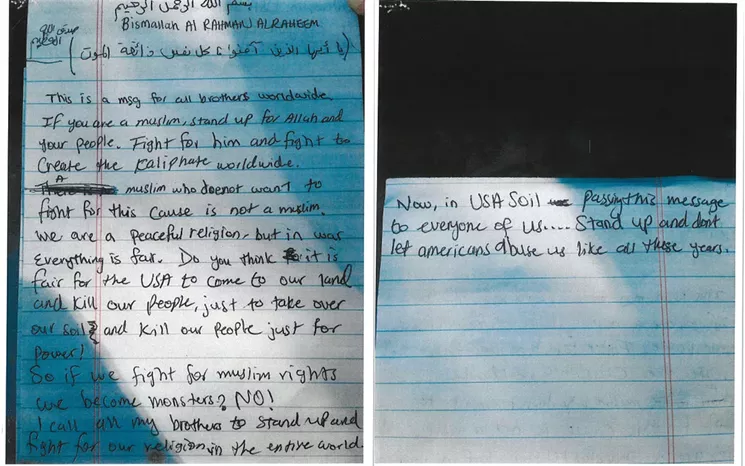 بسم الله الرحمن الرحيم
Bismallah Al RAHMAN ALRAHEEM
(يا أيها الذين آمنوا، كل نفس ذائقة الموت)
This is a msg for all brothers worldwide
If you are a muslim, stand up for Allah and
your people. Fight for him and fight to
Create the kaliphate worldwide.
A muslim who doenot want to
fight for this cause is not a muslim.
we are a peaceful religion, but in war
Everything is fair. Do you think it is
fair for the USA to come to our land
and kill our people, just to take over
our soil and kill our people just for
power!
So if we fight for muslim rights
we become monsters? NO!
I call all my brothers to stand up and
fight for our religion in the entire world.
Now, in USA Soil passing this message
to everyone of us.... Stand up and dont
let americans abuse us like all these years.